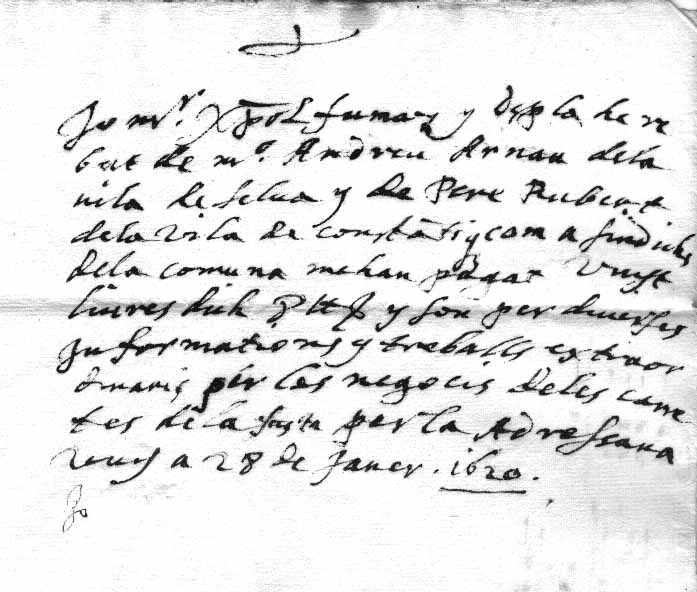 Jo mr. Xpol fumaz y despla he re
but de mo. Andreu Arnau dela
vila de selva y de Pere Rubert
dela vila de constāti y com a sindichs
dela comuna mehan pagat vuyt
liures dich y son per diverses
informations y treballs extraor
dinaris per los negocis deles carre
tes dela fusta per la Adressana
vuy a 28 de Janer. 1620.
Jo